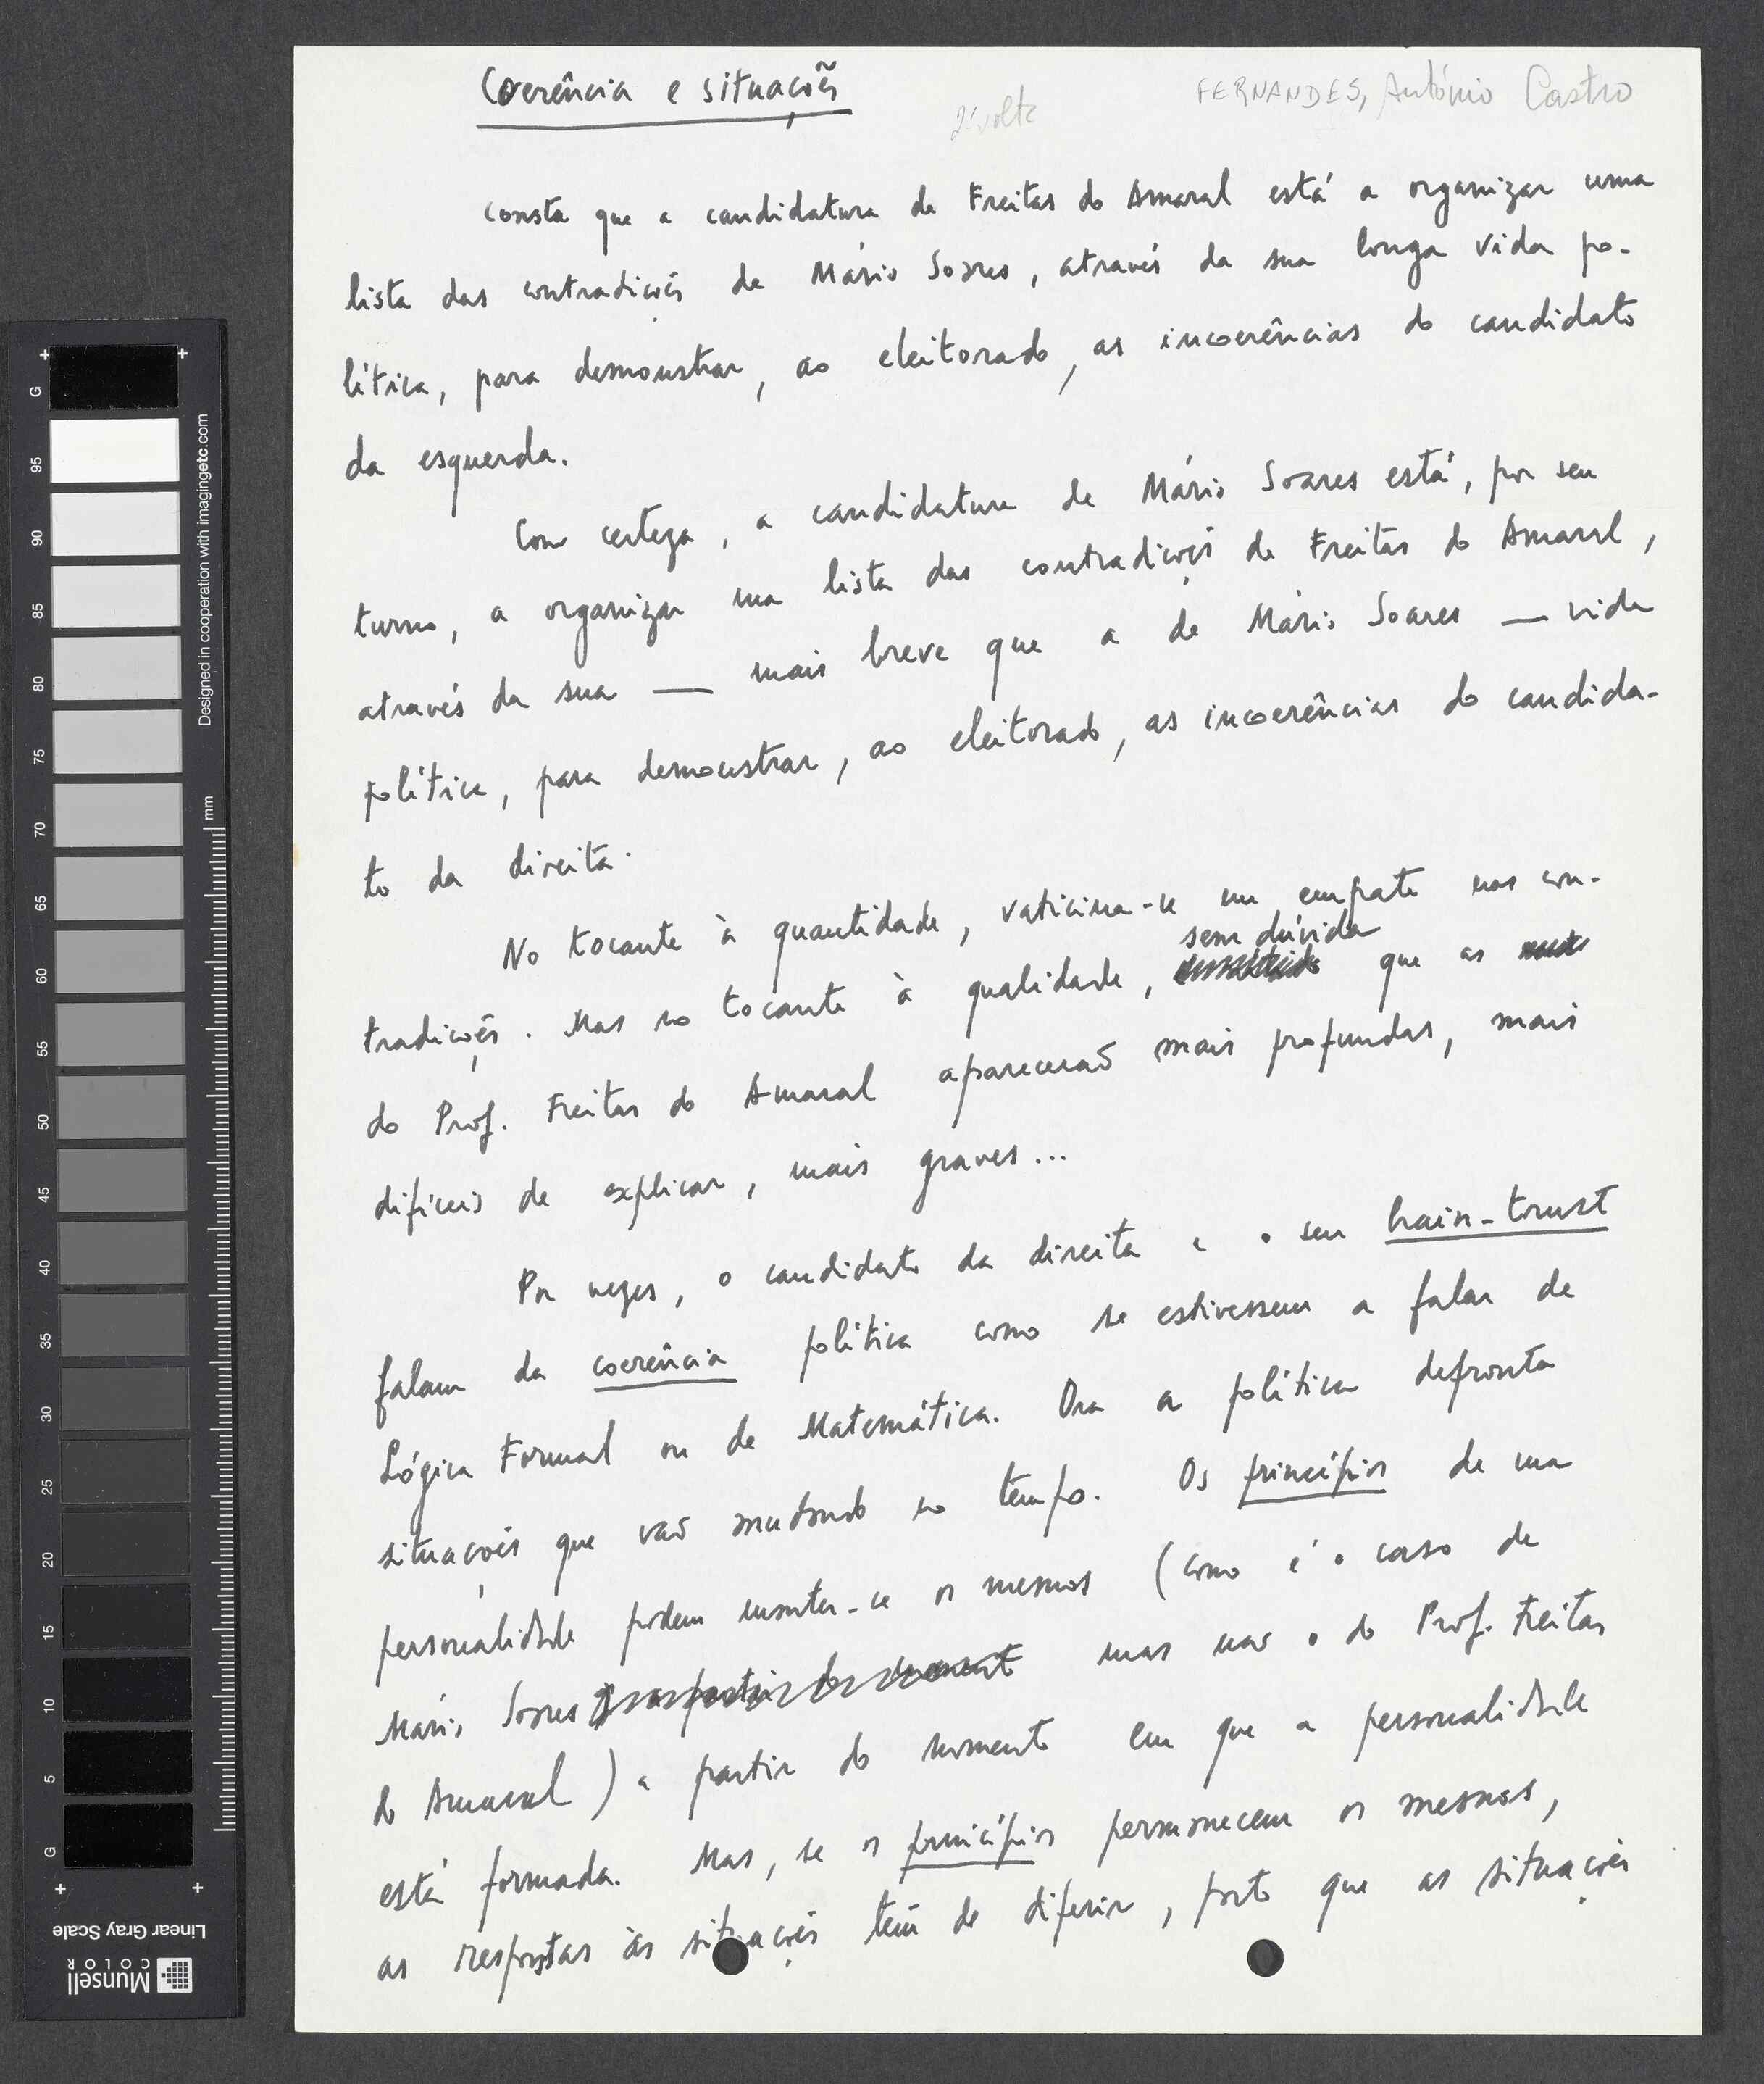 Coerência e situações
2ª volta
FERNANDES, António Castro
Consta que a candidatura de Freitas do Amaral está a organizar uma
lista das contradições de Mário Soares, através da sua longa vida po-
lítica, para demonstrar, ao eleitorado, as incoerências do candidato
da esquerda.
Com certeza, a candidatura de Mário Soares está, por seu
turno, a organizar uma lista das contradições de Freitas do Amaral,
através da sua — mais breve que a de Mário Soares — vida
política, para demonstrar, ao eleitorado, as incoerências do candida-
to da direita.
No tocante à quantidade, vaticina-se um empate nas con-
sem dúvida
tradições. Mas no tocante à qualidade, que as
do Prof. Freitas do Amaral aparecerão mais profundas, mais
difíceis de explicar, mais graves...
Por vezes, o candidato da direita e o seu brain-trust
falam da coerência política como se estivessem a falar de
Lógica Formal ou de Matemática. Ora a política defronta
situações que vão mudando no tempo. Os princípios de uma
personalidade podem manter-se os mesmos (como é o caso de
Mário Soares a partir do momento mas não o do Prof. Freitas
do Amaral) a partir do momento em que a personalidade
está formada. Mas, se os princípios permanecem os mesmos,
as respostas às situações têm de diferir, posto que as situações
G
95
90
85
80
75
70
65
60
55
50
45
40
35
30
25
20
15
10
5
G
mm
Designed in cooperation with imagingetc.com
Linear Gray Scale
Munsell
COLOR